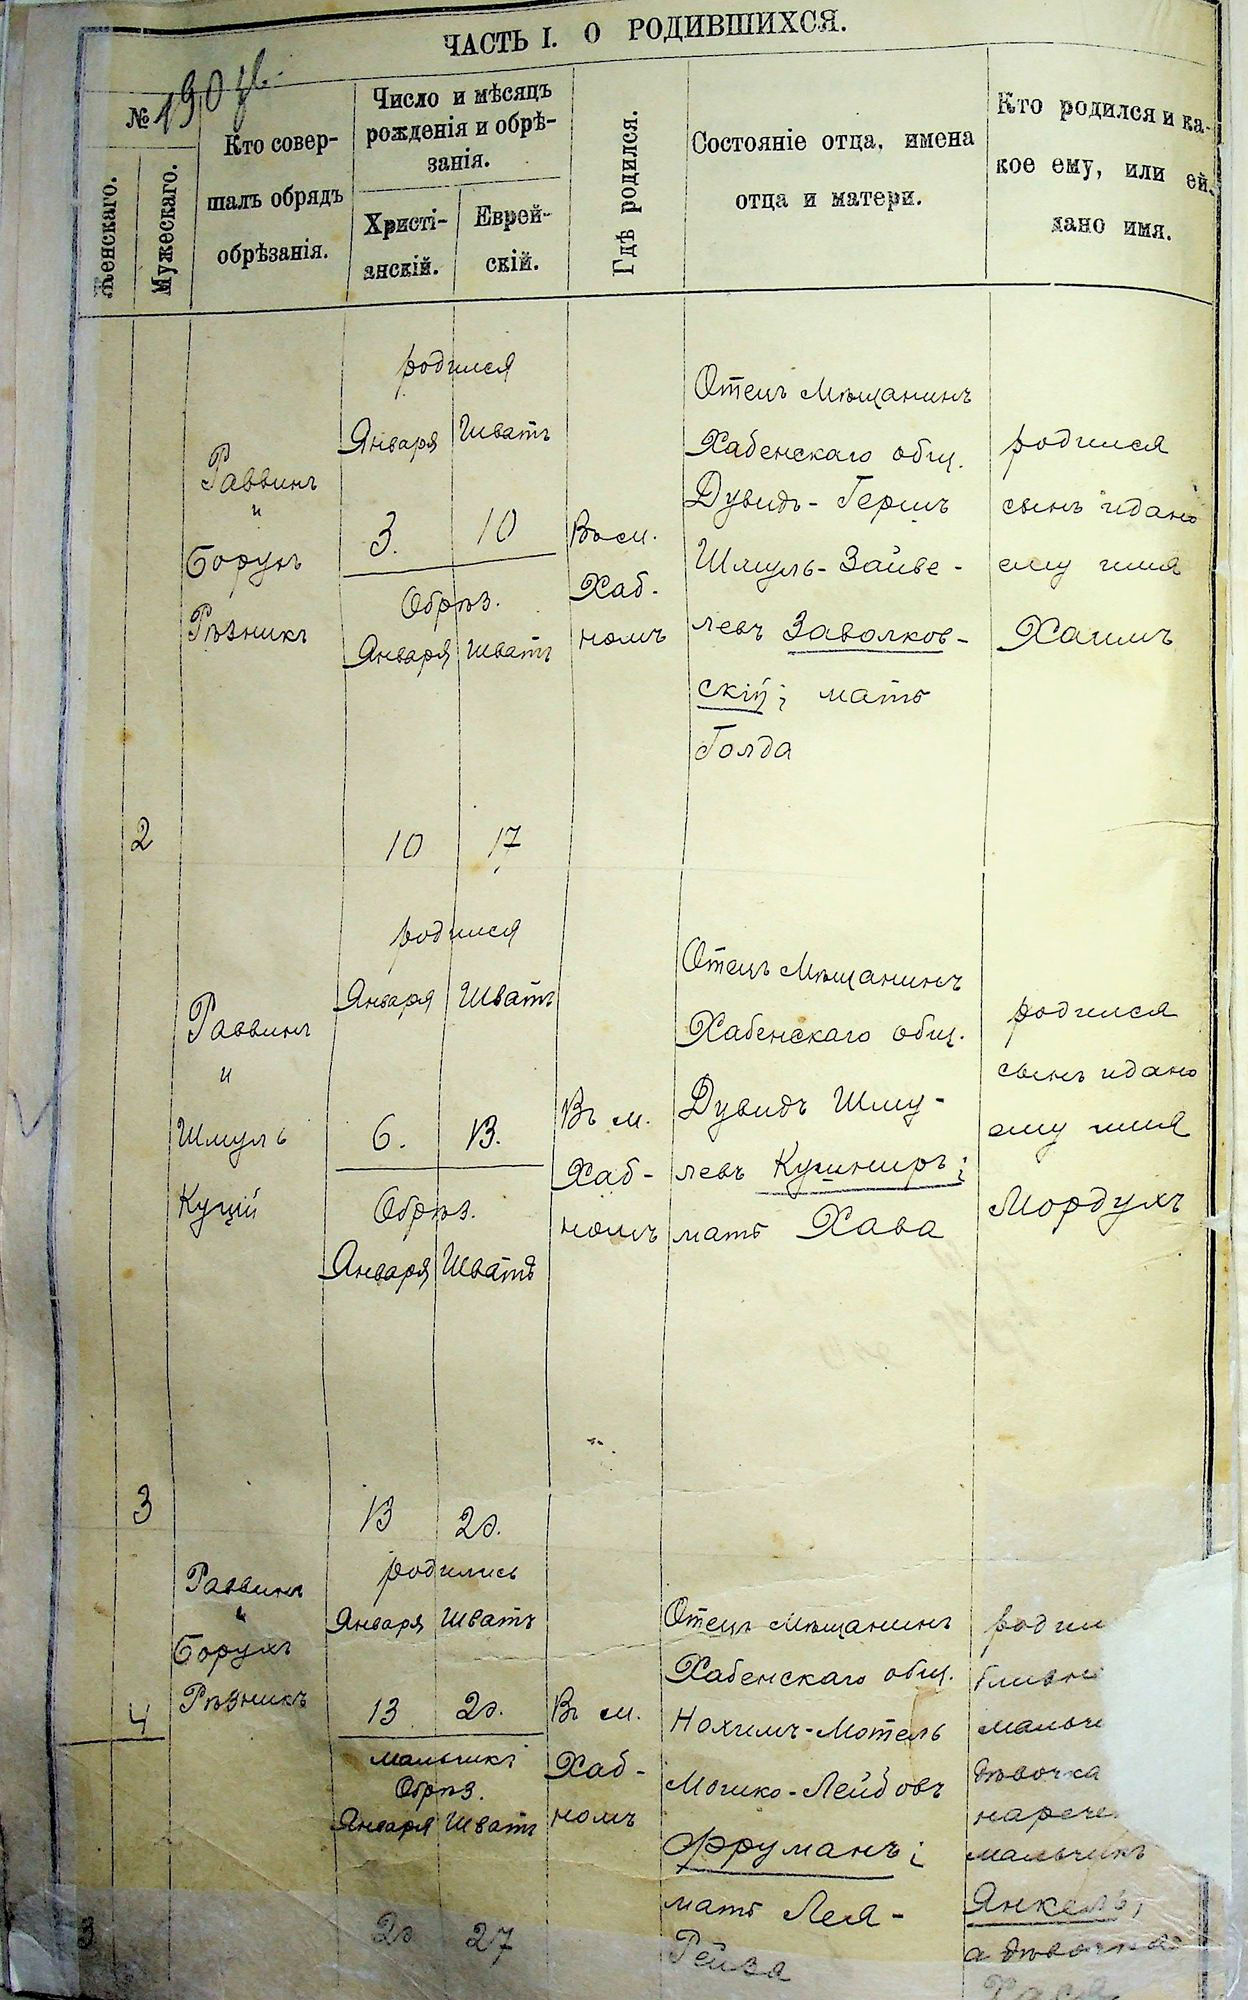 ЧАСТЬ I. О РОДИВШИХСЯ.
№
Женскаго.
Мужескаго.
Кто совер-
шалъ обрядъ
обрѣзанія.
Число и мѣсяцъ
рожденія и обрѣ-
занія.
Христі-
анскій.
Еврей-
скій.
Гдѣ родился.
Состояніе отца, имена
отца и матери.
Кто родился и ка-
кое ему, или ей,
дано имя.
2
Раввинъ
и
Борухъ
Рѣзникъ
родился
Января Шватъ
3. 10
Обрѣз.
Января Шватъ
10 17
Въ м.
Хаб-
номъ
Отецъ Мѣщанинъ
Хабенскаго общ.
Дувидъ-Гершъ
Шмуль-Зайве-
левъ Заволков-
скій; мать
Голда
родился
сынъ и дано
ему имя
Хаимъ
3
Раввинъ
и
Шмуль
Куцій
родился
Января Шватъ
6. 13.
Обрѣз.
Января Шватъ
13 20.
Въ м.
Хаб-
номъ
Отецъ Мѣщанинъ
Хабенскаго общ.
Дувидъ Шму-
левъ Кушниръ;
мать Хава
родился
сынъ и дано
ему имя
Мордухъ
4
3
Раввинъ
и
Борухъ
Рѣзникъ
родились
Января Шватъ
13 20.
мальчикъ
Обрѣз.
Января Шватъ
20 27
Въ м.
Хаб-
номъ
Отецъ Мѣщанинъ
Хабенскаго общ.
Нохимъ-Мотель
Мошко-Лейбовъ
Фруманъ;
мать Лея-
Рейза
роди
близне
мальчи
дѣвочка
нарече
мальчикъ
Янкель,
а дѣвочка